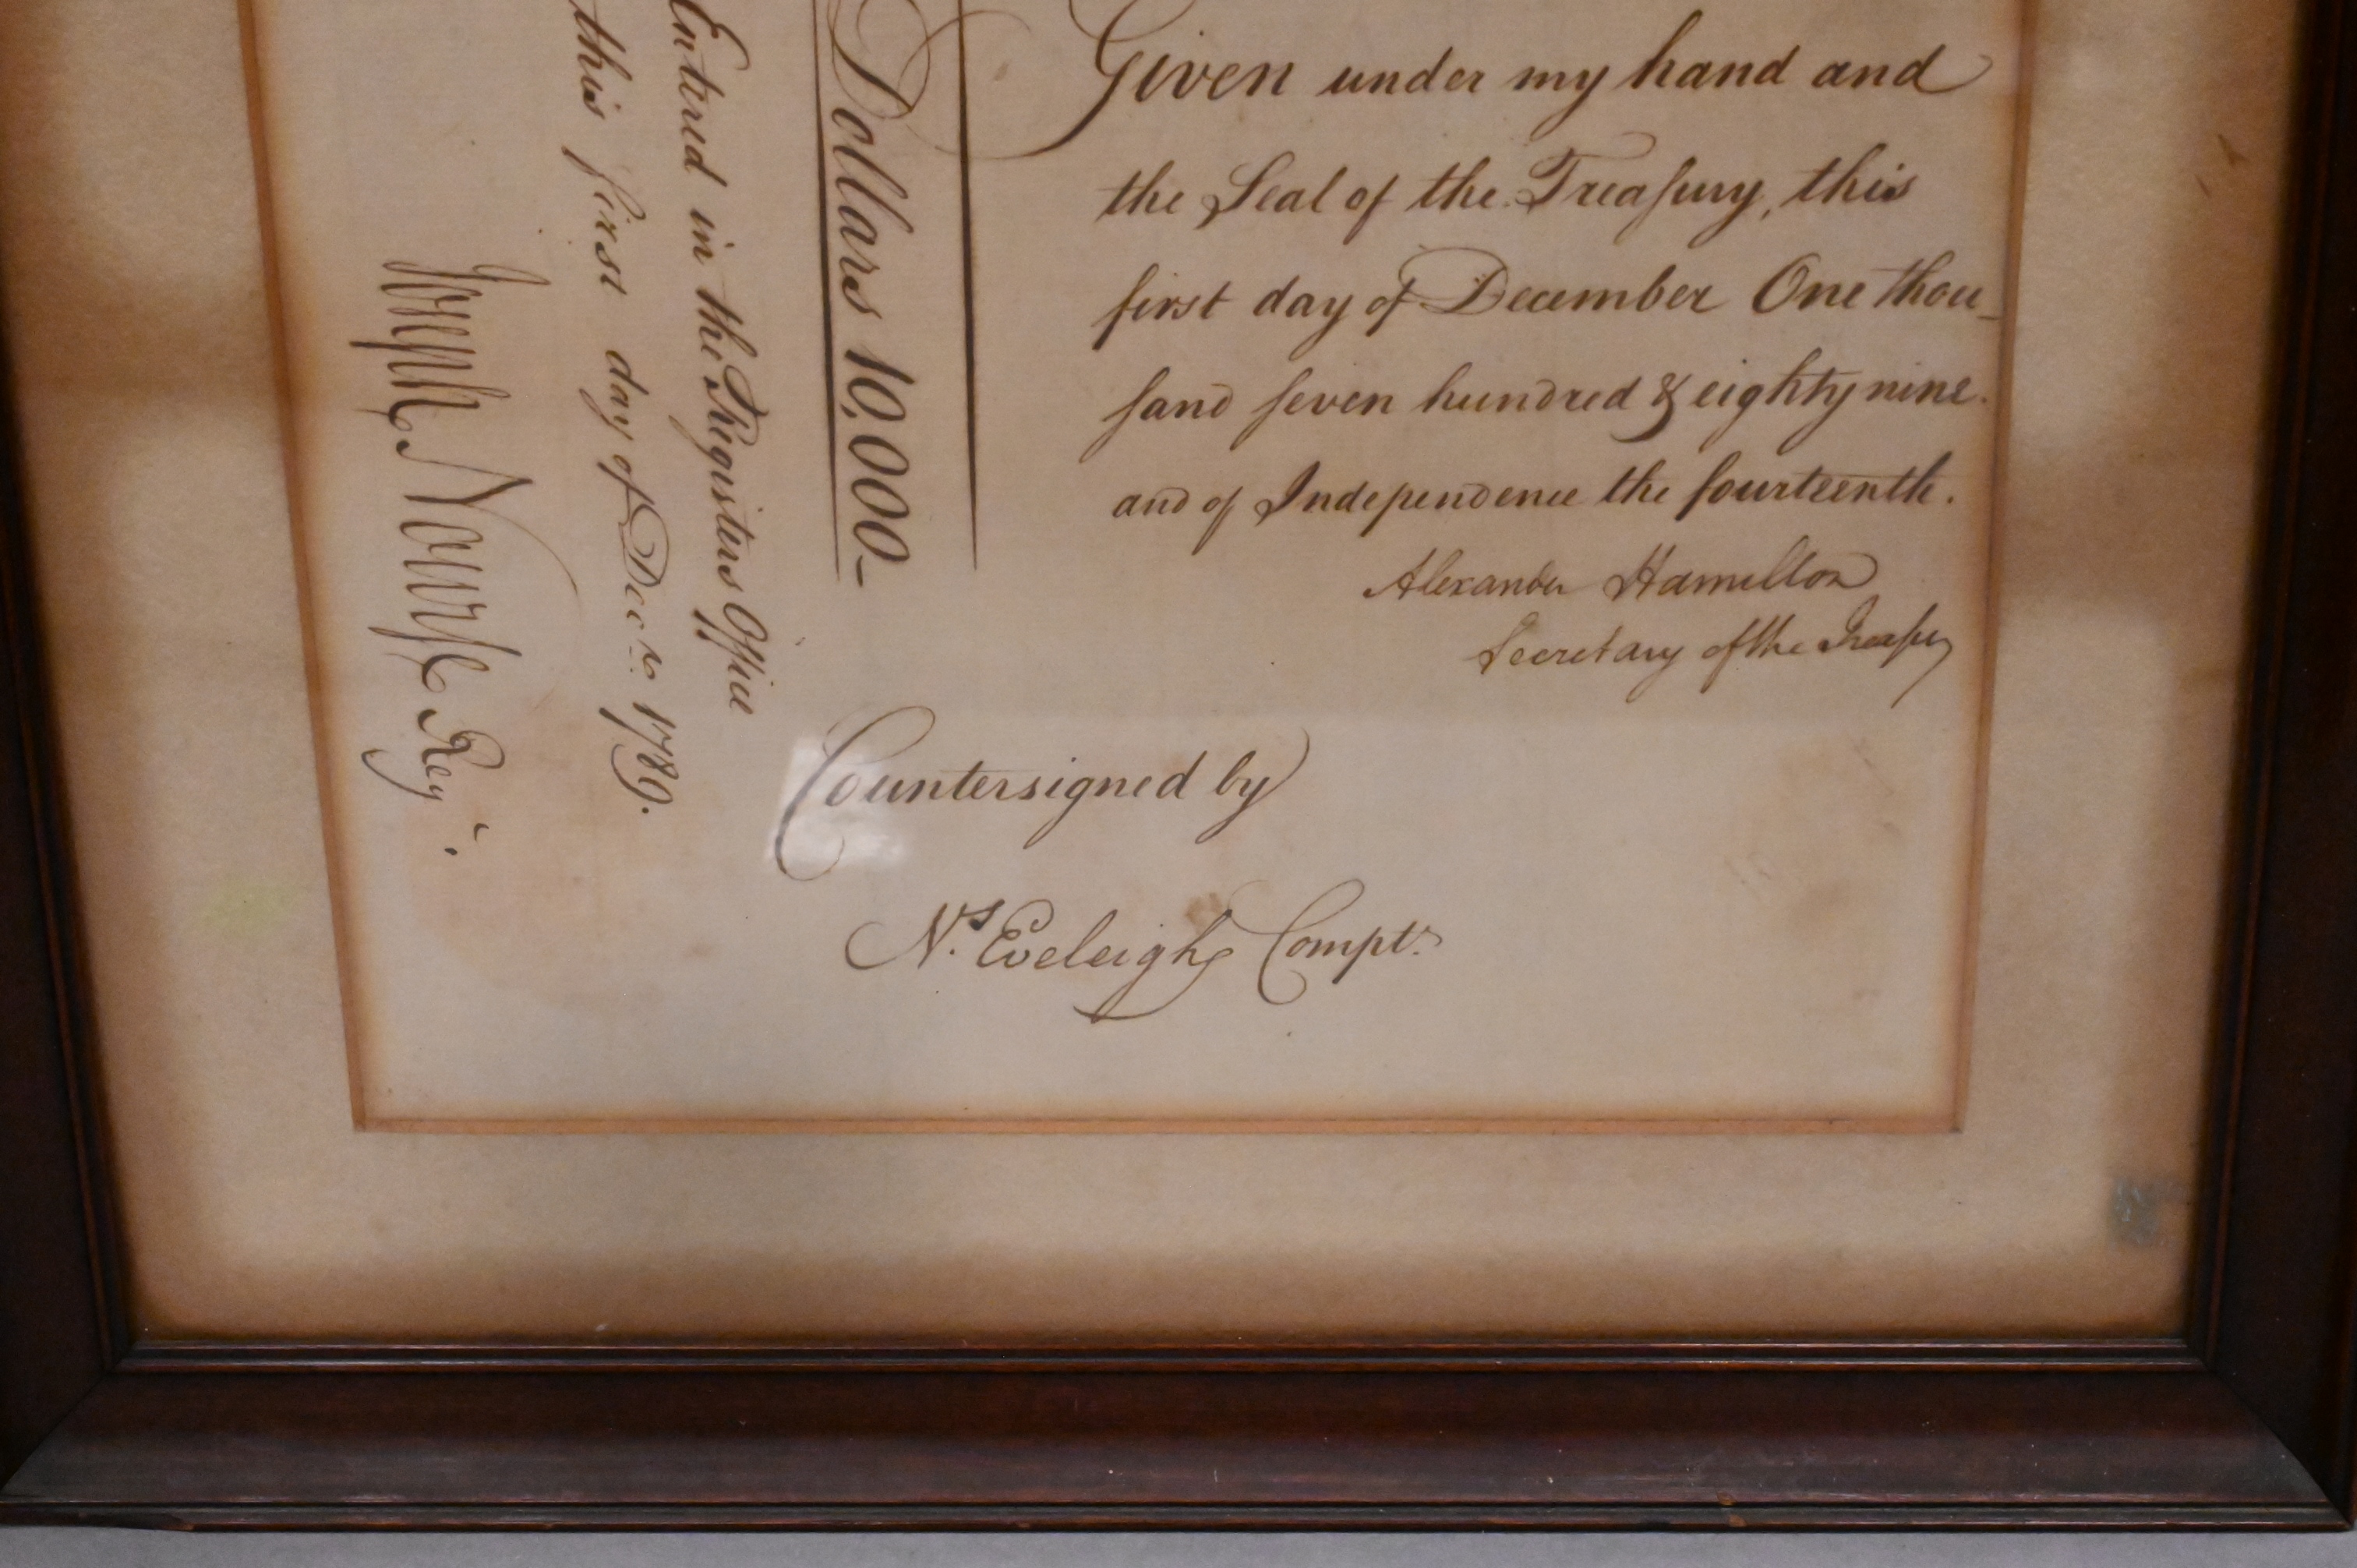 Given under my hand and
the Seal of the Treaſury, this
first day of December One thou_
ſand ſeven hundred & eighty nine.
and of Independence the fourteenth.
Alexander Hamilton
Secretary of the Treaſy
Dollars 10,000_
Entered in the Registers Office
this first day of Decr. 1789.
Joseph Nourſe Regr.
Countersigned by
N.s Eveleigh Compt.r